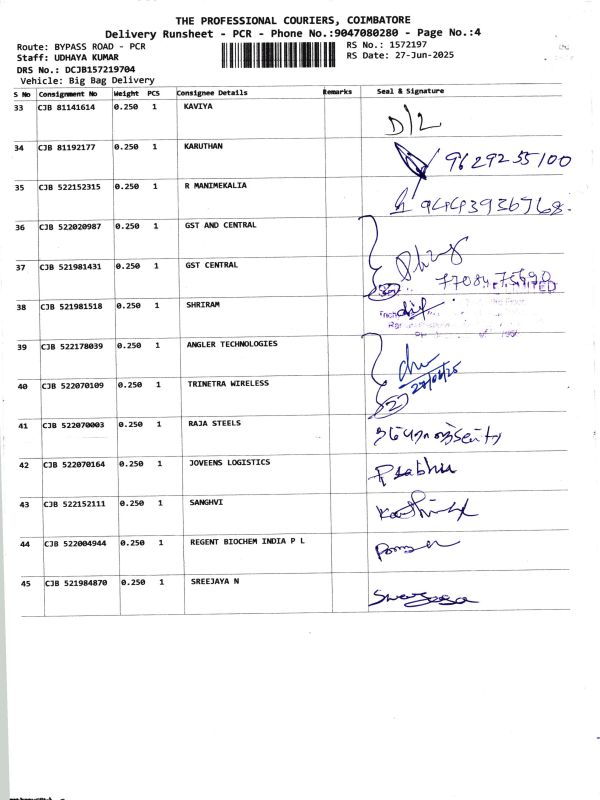 THE PROFESSIONAL COURIERS, COIMBATORE
Delivery Runsheet - PCR - Phone No.:9047080280 - Page No.:4
Route: BYPASS ROAD - PCR
RS No.: 1572197
Staff: UDHAYA KUMAR
RS Date: 27-Jun-2025
DRS No.: DCJB157219704
Vehicle: Big Bag Delivery
S No Consignment No Weight PCS Consignee Details Remarks Seal & Signature
33 CJB 81141614 0.250 1 KAVIYA D/L
34 CJB 81192177 0.250 1 KARUTHAN 9629255100
35 CJB 522152315 0.250 1 R MANIMEKALIA 9443936768
36 CJB 522020987 0.250 1 GST AND CENTRAL
37 CJB 521981431 0.250 1 GST CENTRAL
38 CJB 521981518 0.250 1 SHRIRAM
39 CJB 522178039 0.250 1 ANGLER TECHNOLOGIES
40 CJB 522070109 0.250 1 TRINETRA WIRELESS 27/06/25
2
41 CJB 522070003 0.250 1 RAJA STEELS
42 CJB 522070164 0.250 1 JOVEENS LOGISTICS Prabhu
43 CJB 522152111 0.250 1 SANGHVI
44 CJB 522004944 0.250 1 REGENT BIOCHEM INDIA P L
45 CJB 521984870 0.250 1 SREEJAYA N